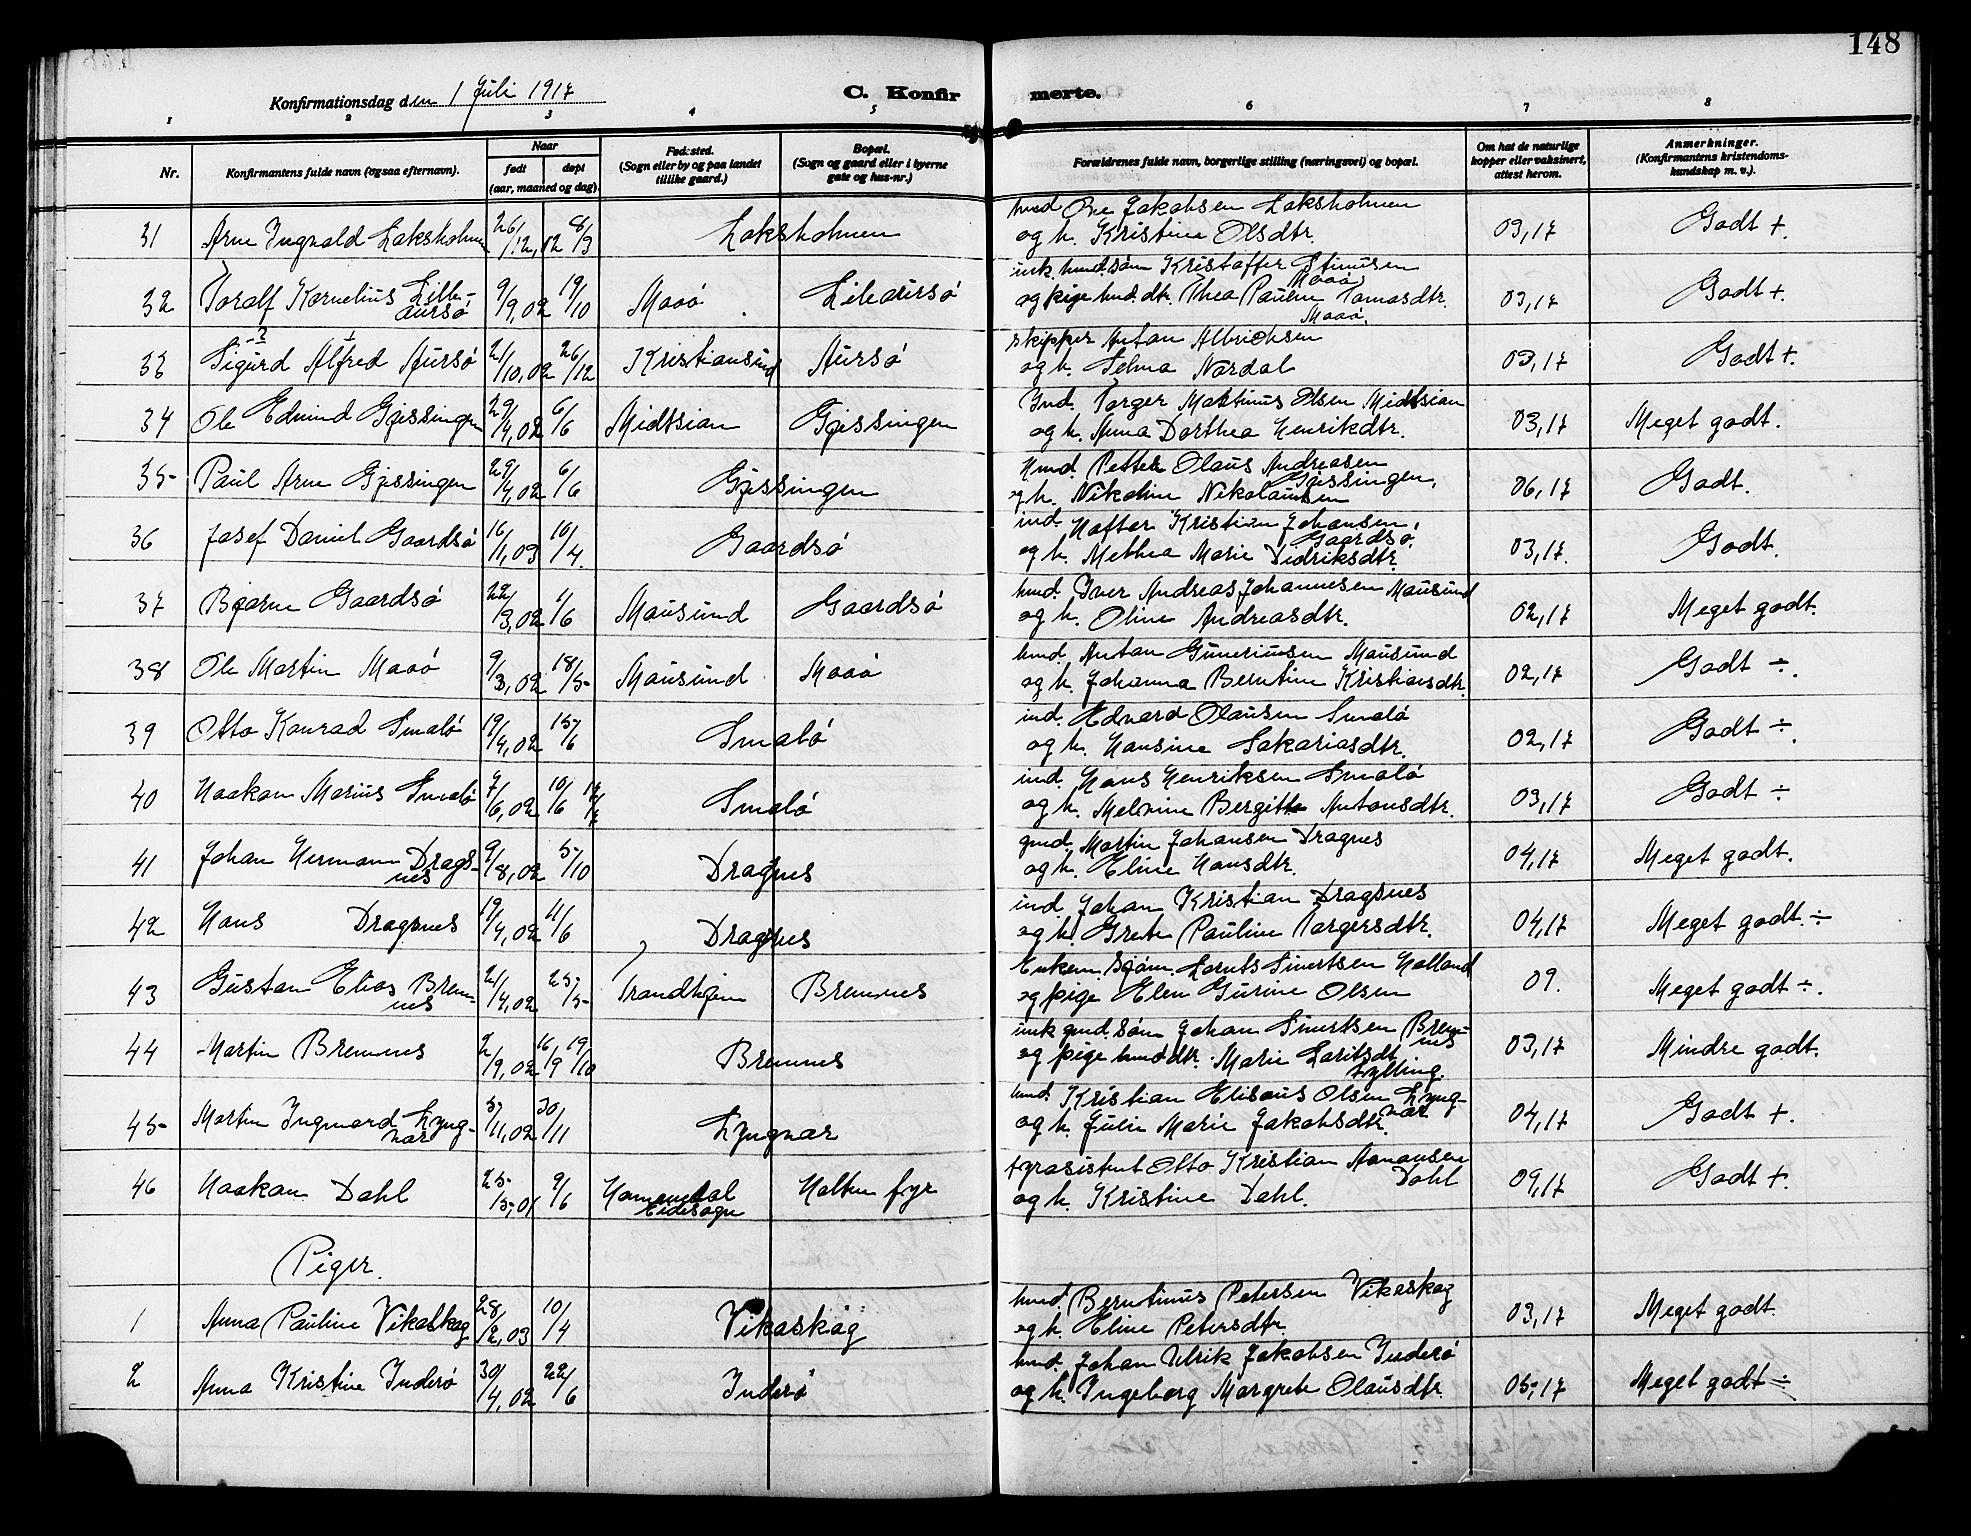 148
Konfirmationsdag den 1 Juli 1917
C. Konfirmerte.
1 2 3 4 5 6 7 8
Nr.
Konfirmantens fulde navn (ogsaa efternavn).
Naar
født døpt
(aar, maaned og dag).
Fødested.
(Sogn eller by og paa landet
tillike gaard.)
Bopæl.
(Sogn og gaard eller i byerne
gate og hus-nr.)
Forældrenes fulde navn, borgerlige stilling (næringsvei) og bopæl.
Om hat de naturlige
kopper eller vaksinert,
attest herom.
Anmerkninger.
(Konfirmantens kristendoms-
kundskap m. v.).
31 Arne Ingvald Laksholmen 26/12,12 8/3 Laksholmen
hmd Ole Jakobsen Laksholmen
og h. Kristine Olsdtr. 03,17 Godt +
32 Toralf Kornelius Lille-
aursø 9/9,02 19/10 Maaø Lilleaursø
ink. hmd. søn Kristoffer Maaø
og pige hmd. dtr. Thea Pauline Tomasdtr.
Maaø. 03,17 Godt +.
33 Sigurd Alfred Aursø 21/10,02 26/12 Kristiansund Aursø
skipper Anton Albrichsen
og h. Selma Nordal 03,17 Godt +.
34 Ole Edvind Gjessingen 29/4,02 6/6 Midtsian Gjessingen
Ind. Torger Maktinus Olsen Midtsian
og h. Anna Dorthea Henrikdtr. 03,17 Meget godt.
35 Paul Arne Gjessingen 29/4,02 6/6 Gjessingen
Hmd. Petter Olaus Andreasen
Gjessingen,
og h. Nikoline Nikolausen 06,17 Godt.
36 Josef Daniel Gaardsø 16/1,03 10/4. Gaardsø
ind. Hafter Kristian Johansen,
Gaardsø.
og h. Methea Marie Didriksdtr. 03,17. Godt.
37 Bjarne Gaardsø 22/3,02 1/6 Mausund Gaardsø
hmd. Iver Andreas Johannesen Mausund
og h. Oline Andreasdtr. 02,17 Meget godt.
38 Ole Martin Maaø 9/3,02 18/5 Mausund Maaø
hmd. Anton Guneriusen Mausund
og h. Johanna Berntine Kristiansdtr. 02,17 Godt ÷.
39 Otto Konrad Smalø 19/4,02 15/6 Smalø
ind. Edvard Olausen Smalø
og h. Hansine Sakariasdtr. 02,17 Godt ÷.
40 Haakon Marius Smalø 7/6,02 10/6 17/7 Smalø
ind. Hans Henriksen Smalø
og h. Melvine Bergitte Antonsdtr. 03,17 Godt ÷
41 Johan Hermann Drags-
nes 9/8,02 5/10 Dragnes
gmd. Martin Johansen Dragnes
og h. Eline Hansdtr. 04,17 Meget godt.
42 Hans Dragsnes 19/4,02 11/6 Dragnes
ind. Johan Kristian Dragsnes
og h. Grete Pauline Torgersdtr. 04,17 Meget godt. ÷
43 Gustav Elias Brem-
nes 21/4,02 25/5 Trondhjem Bremnes
Enkem. Sjøm. Lornts Sivertsen Holland
og pige Elen Gurine Olsen 09. Meget godt ÷.
44 Martin Bremnes 2/9,02 16/9 19/10 Bremnes
ink gmd. søn Johan Sivertsen Brem-
nes
og pige hmd dtr. Marie Lauritsdt
Fylling. 03,17 Mindre godt.
45 Martin Ingmard Lyng-
vær 5/11,02 30/11 Lyngvær
hmd. Kristian Elisæus Olsen Lyng-
vær
og h. Julie Marie Jakobsdtr. 04,17 Godt +.
46 Haakon Dahl 25/5,01 9/6 Namsendal
Eidesogn Halten fyr
fyrasistent Otto Kristian Aanansen
Dahl
og h. Kristine Dahl. 09,17 Godt +.
Piger.
1 Anna Pauline Vikaskag 28/2,03 10/4 Vikaskag
hmd. Berntinus Petersen Vikaskag
og h. Eline Petersdtr. 03,17 Meget godt.
2 Anna Kristine Inderø 30/4,02 22/6 Inderø
hmd. Johan Ulrik Jakobsen Inderø
og h. Ingeborg Margrete Olausdtr. 05,17 Meget godt ÷